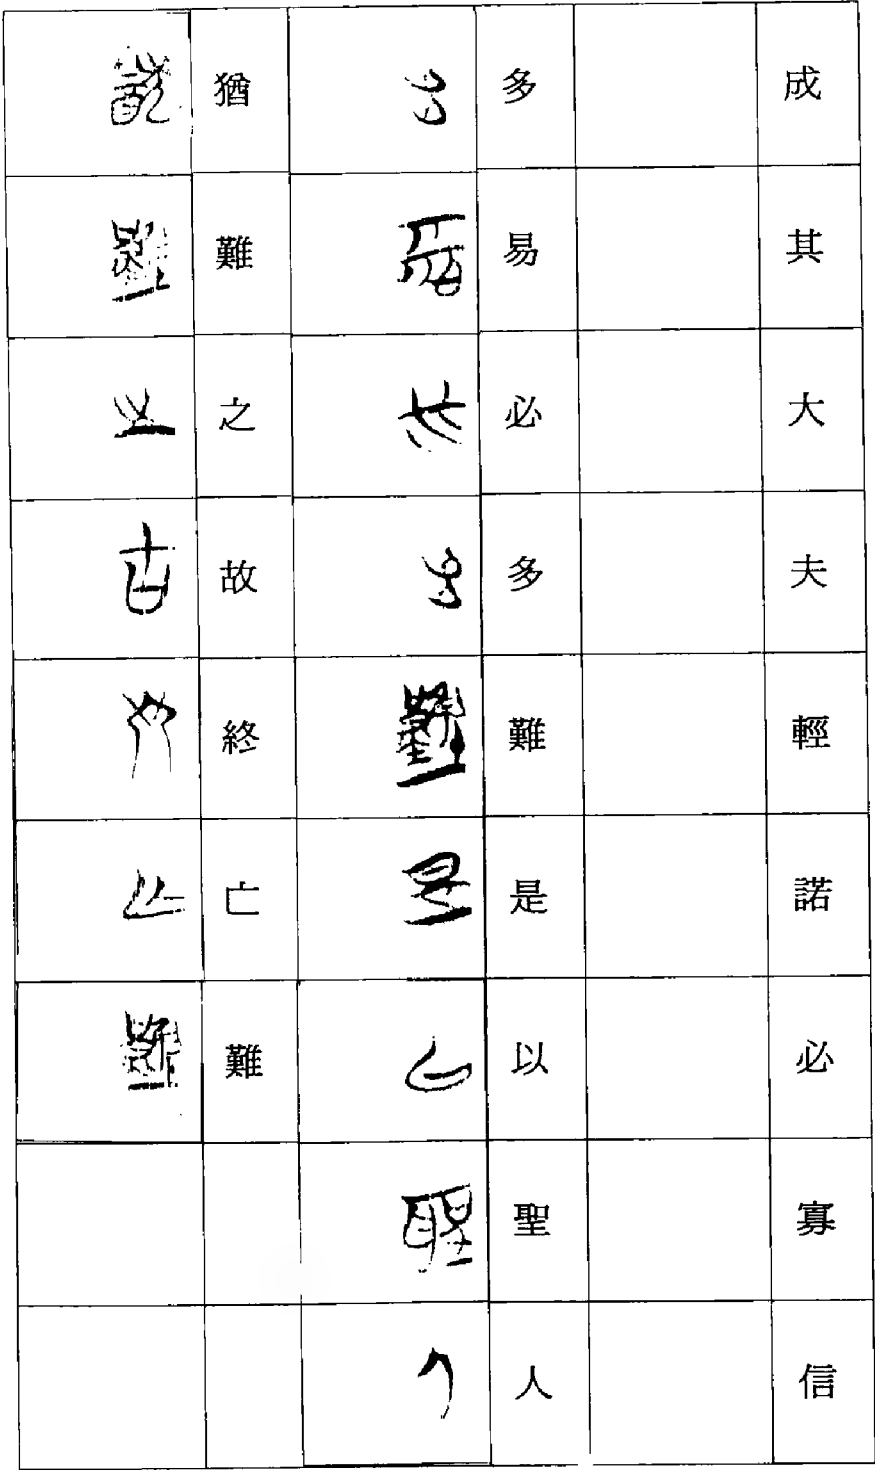 成其大夫輕諾必寡信
多易必多難是以聖人
猶難之故終亡難